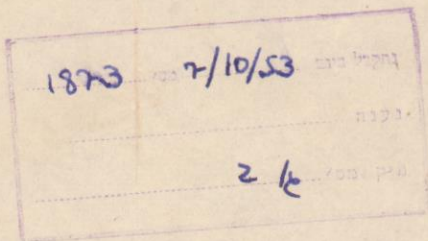 נתקבל ביום 7/10/53 מס' 1873
נענה
תיק ומס' 2